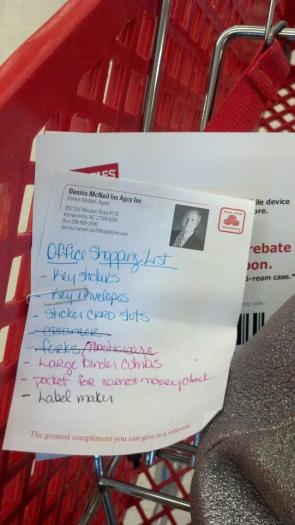 PLES
Dennis McNeil Ins Agcy Inc
Dennis McNeil, Agent
Office Shopping List
- Key stickers
- Key envelopes
- Sticker card slots
- creamer
- forks/
- Large binder combs
- pocket for earnest money check
- Label maker
The greatest compliment you can give is a referral.
ile device
ore.
rebate
pon.
5-ream case.*